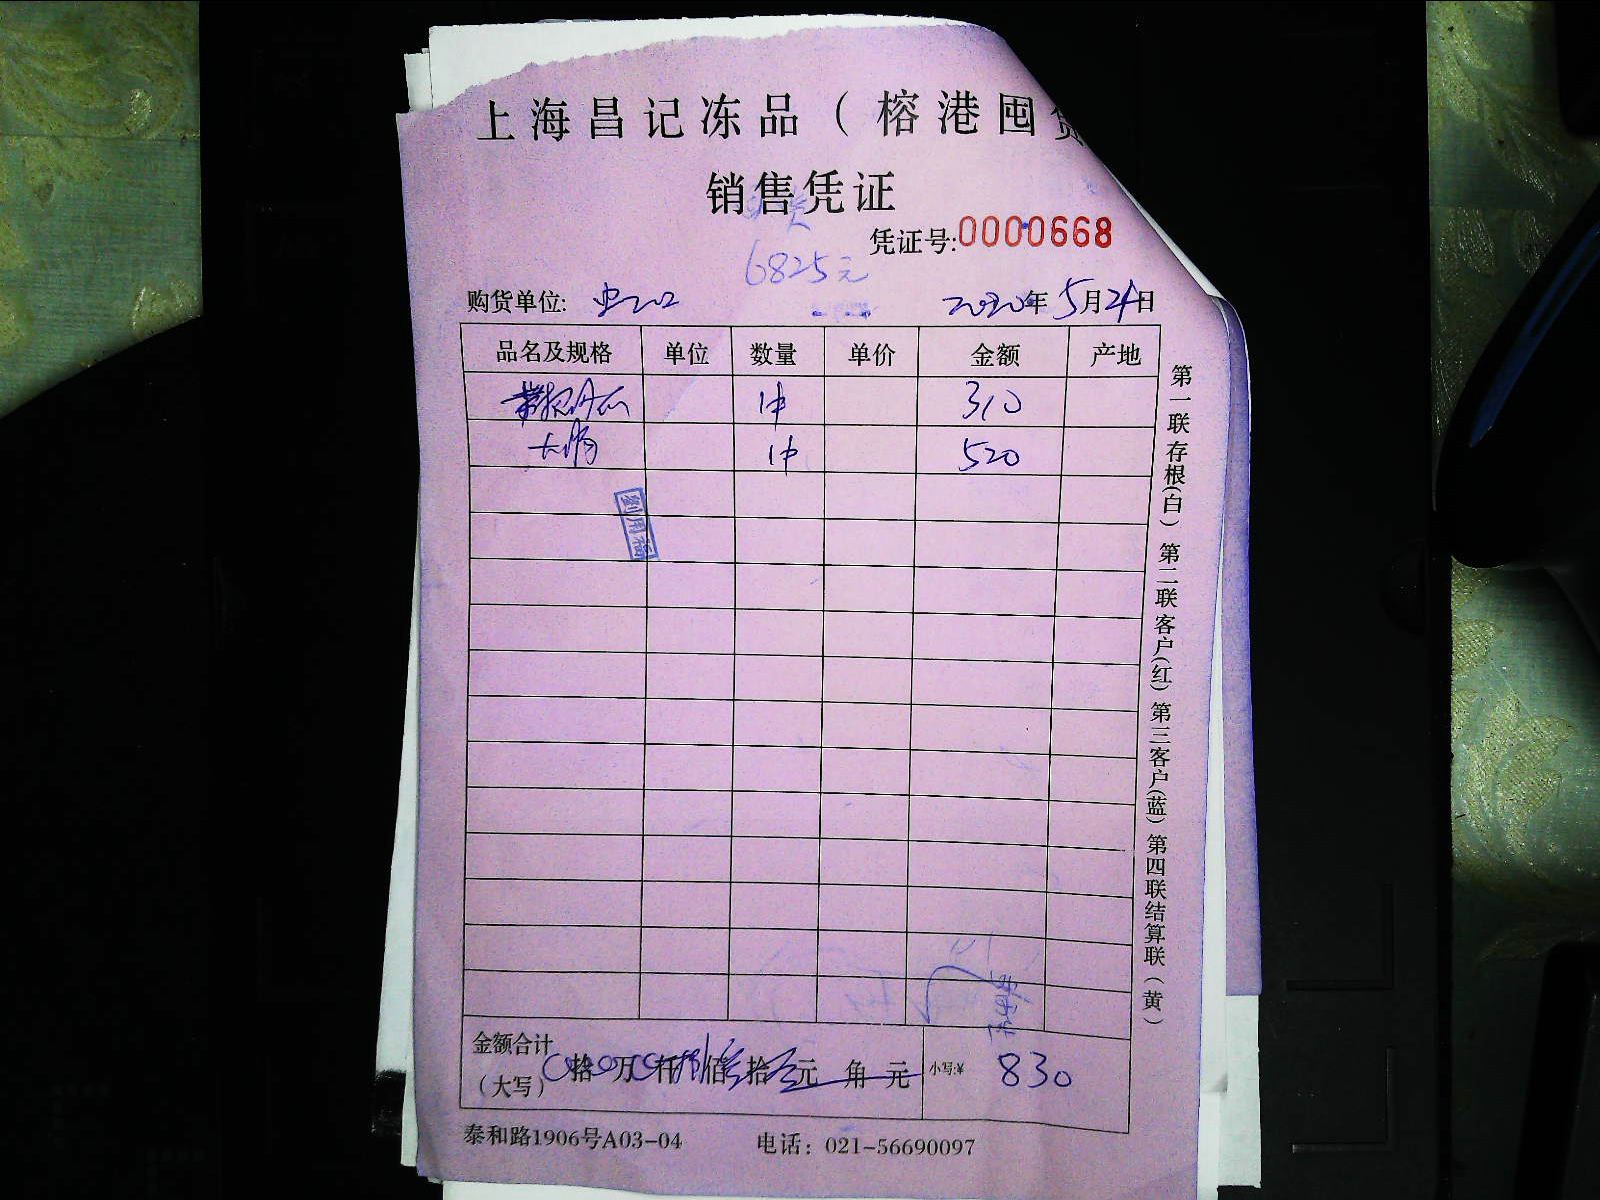 上海昌记冻品（榕港囤货
销售凭证
凭证号:0000668
6825元
购货单位: 2020年5月24日
品名及规格 单位 数量 单价 金额 产地
1件 310
大肠 1件 520
劉用福
金额合计（大写） 拾 万 仟 捌佰叁拾 元 角 元 小写:¥ 830
泰和路1906号A03-04 电话：021-56690097
第一联存根(白) 第二联客户(红) 第三客户(蓝) 第四联结算联(黄)